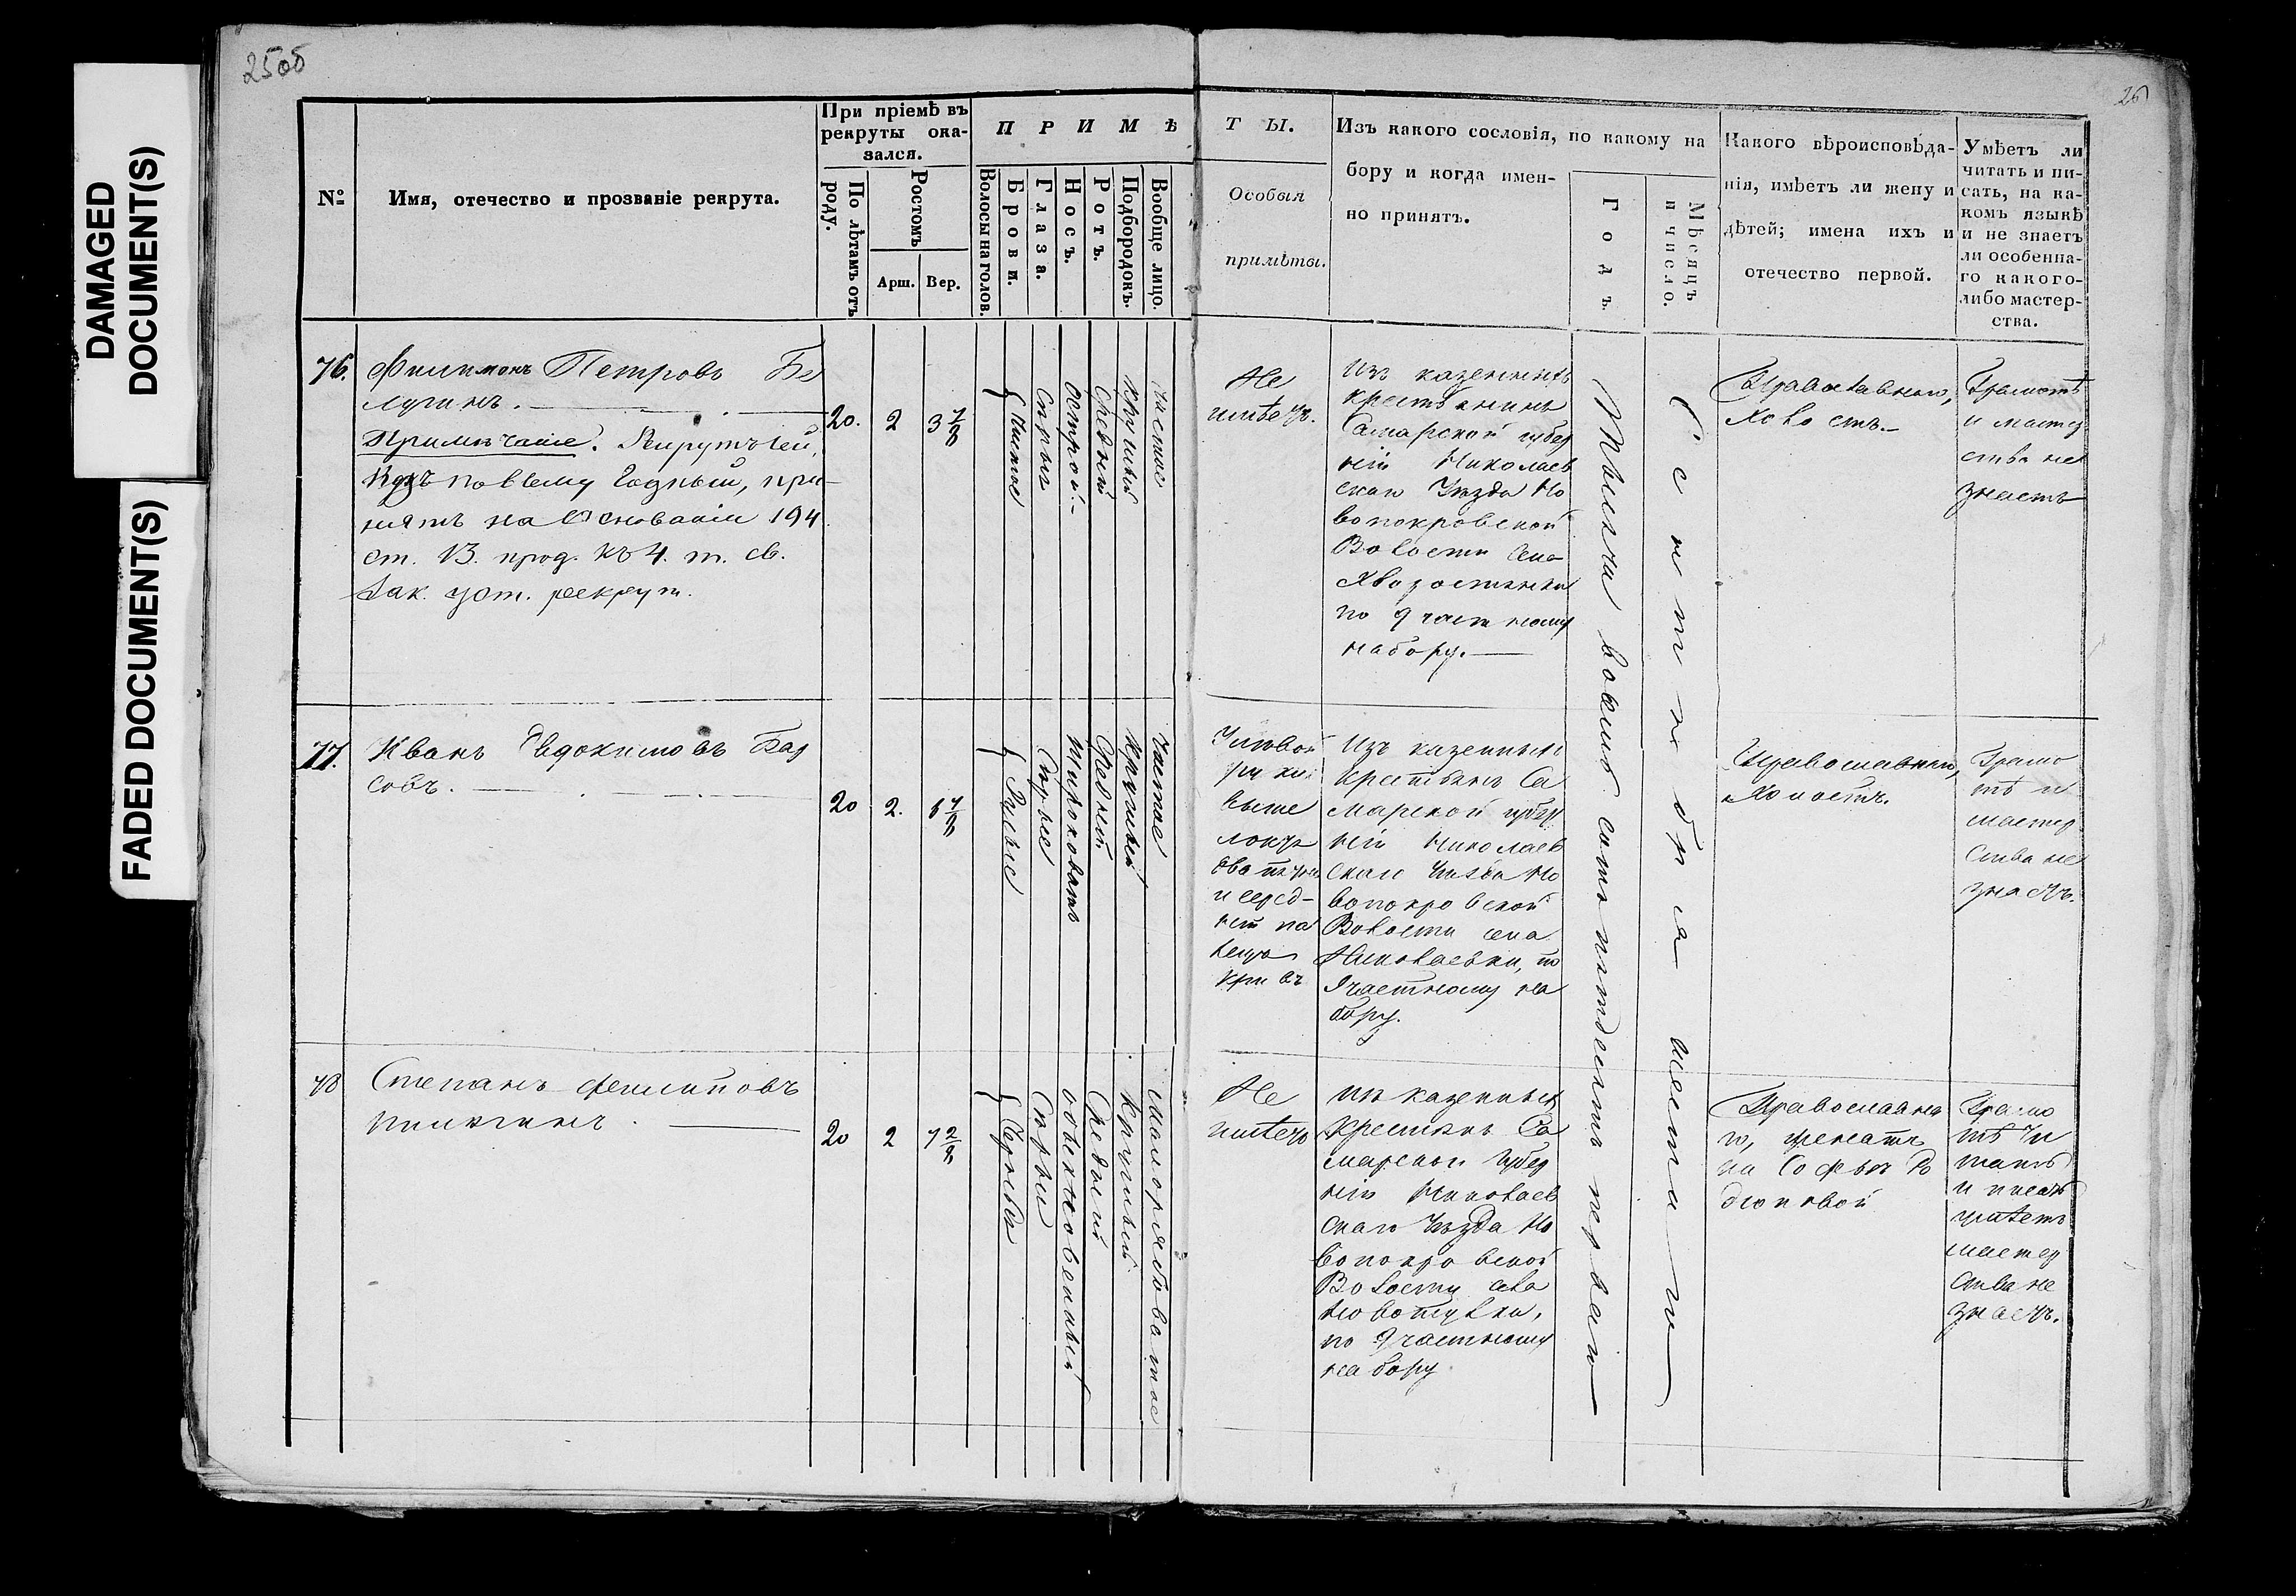 DAMAGED
DOCUMENT(S)
FADED DOCUMENT(S)
25об
26
№
Имя, отчество и прозваніе рекрута.
При пріемѣ въ
рекруты ока-
зался.
По лѣтамъ отъ
роду.
Ростомъ
Арш.
Вер.
ПРИМѢ
Волосы на голов.
Брови.
Глаза.
Носъ.
Ротъ.
Подбородокъ.
Вообще лицо.
ТЫ.
Особыя
примѣты.
Изъ какого сословія, по какому на
бору и когда имен-
но принятъ.
Годъ.
Мѣсяцъ
и число.
Какого вѣроисповѣда-
нія, имѣетъ ли жену и
дѣтей; имена ихъ и
отечество первой.
Умѣетъ ли
читать и пи-
сать, на ка-
комъ языкѣ
и не знаетъ
ли особенна-
го какого-
либо мастер-
ства.
76.
Филимонъ Петровъ Бе
лугинъ.
Примѣчаніе.
по всему Годный, при-
нятъ на Основаніи 194
ст. 13. прод. къ 4. т. св.
Зак. уст. рекрут.
20.
2
3 7/8
Сѣрыя
острой
Средній
Круглый
Чистое
Не
имѣетъ.
Изъ казенныхъ
крестьянинъ
Самарской губер
ніи Николаев
скаго Уѣзда Но
вопокровской
Волости села
Хворостянки
по 9 частному
набору.
Православнаго,
Холостъ.
Грамотѣ
и мастер
ства не
знаетъ
Тысяча восемь сотъ пятдесятъ перваго
Сентября шестаго
77.
Иванъ Евдокимовъ Бар
совъ.
20
2.
Русые
Сѣрые
Широковатъ
Средній
Круглый
Чистое
У лѣвой
руки
выше
локтя
два пятна
и серед-
ній па
лецъ
кривъ
Изъ казенныхъ
Крестьянъ Са
марской губер
ніи Николаев
скаго Уѣзда Но
вопокровской
Волости села
Николаевки, по
9 частному на
бору.
Православнаго,
Холостъ.
Грамо
тѣ и
мастер
ства не
знаетъ.
78
Степанъ Филиповъ
20
2
Сѣрыя
обыкновенный
Средній
Круглый
Малорябоватое
Не
имѣетъ
Изъ казенныхъ
Крестьянъ Са
марской Губер
ніи Николаев
скаго Уѣзда Но
вопокровской
Волости села
по 9 частному
набору
Православна
го, женатъ
на Софьѣ Ро
діоновой
Грамо
тѣ чи
тать
и писать
умѣетъ
мастер
ства не
знаетъ.